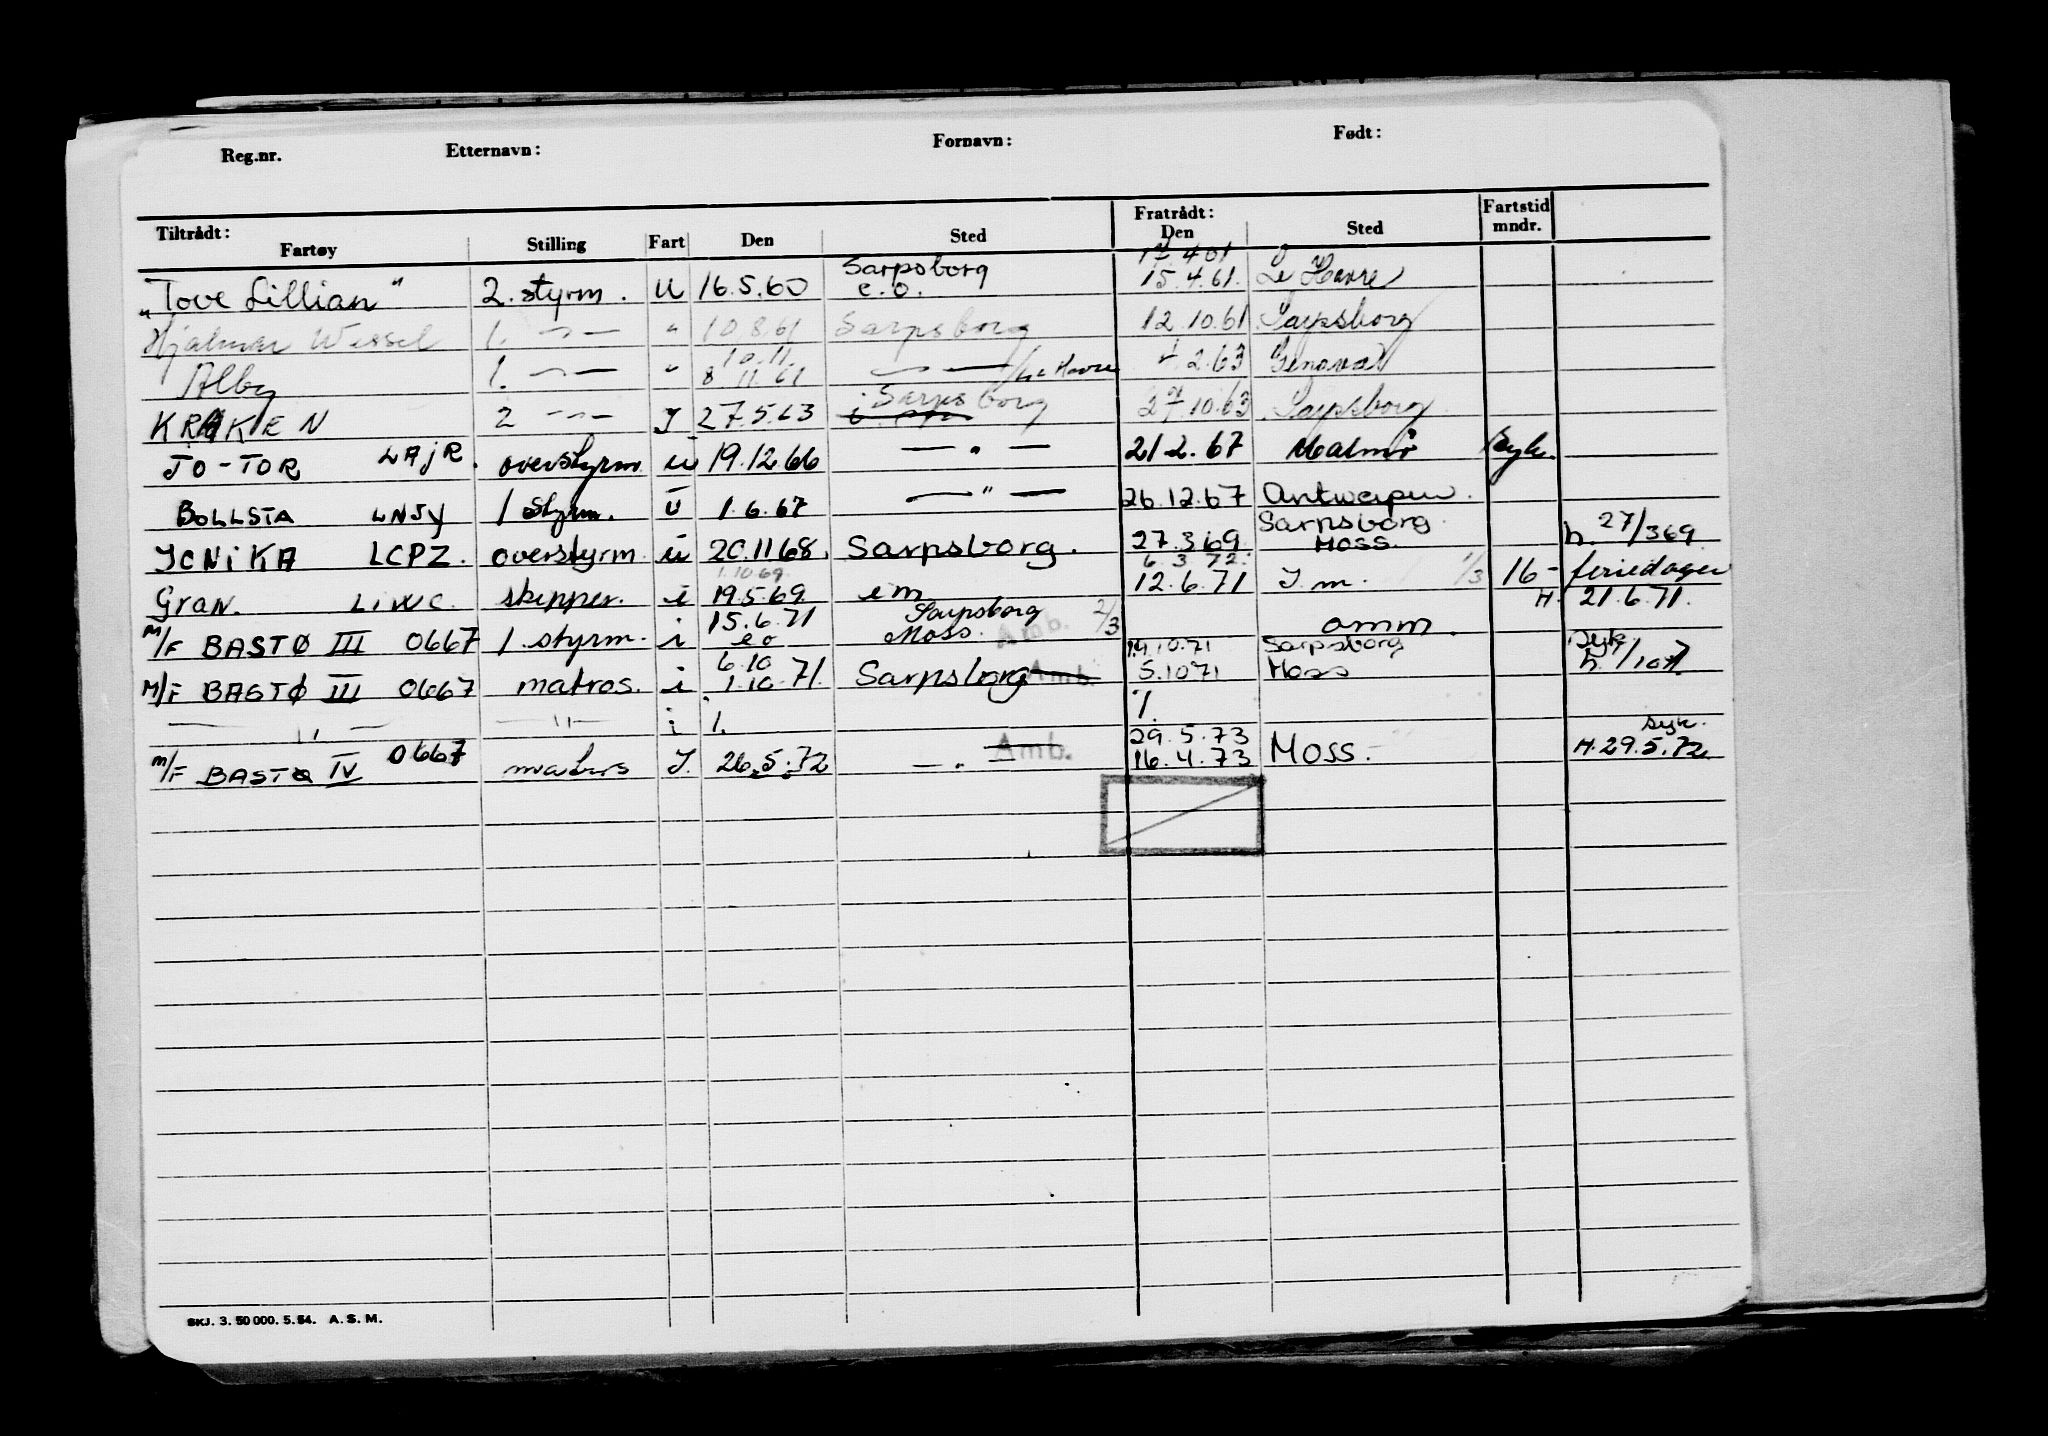 Reg.nr. Etternavn: Fornavn: Født:
Tiltrådt: Fratrådt: Fartstid
Fartøy Stilling Fart Den Sted Den Sted mndr.
Sarpsborg 17.4.61
"Tove Lillian" 2. styrm. U 16.5.60 e.o. 15.4.61. Le Havre
Hjalmar Wessel 1. -"- " 10.8.61 Sarpsborg 12.10.61 Sarpsborg
10.11.
Alby 1. -"- " 8.11.61 -"- / Le Havre 2.63 Genova
Sarpsborg
KRAKEN 2 -"- I 27.5.63 27.10.63 Sarpsborg
JO-TOR LAJR. overstyrm. ü 19.12.66 -"- 21.2.67 Malmö Syk.
BOLLSTA LNJY 1 styrm. ü 1.6.67 -"- 26.12.67 Antwerpen.
Sarpsborg.
JONIKA LCPZ. overstyrm. ü 20.11.68. Sarpsborg. 27.3.69. Moss. h. 27/369
1.10.69. 6.3.72.
Gran. LIWC. skipper. i 19.5.69. em 12.6.71 I.m. 1/3 16- feriedager
15.6.71 Sarpsborg H. 21.6.71.
M/F BASTØ III 0667 1. styrm. i eo Moss. Amb. 2/3 omm.
6.10 14.10.71 Sarpsborg Syk.
M/F BASTØ III 0667 matros. i 1.10.71. Sarpsborg Amb. 5.1071 Moss
-"- -"- i 1. %.
29.5.73 syk.
M/F BASTØ IV 0667 matros I. 26.5.72 -"- Amb. 16.4.73 Moss. H.29.5.72
SKJ. 3. 50 000. 5. 54. A. S. M.